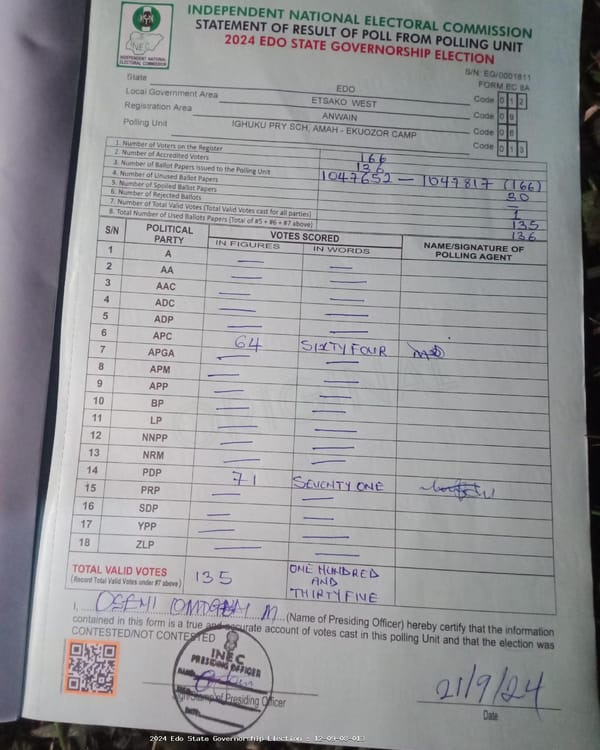 INDEPENDENT NATIONAL ELECTORAL COMMISSION
STATEMENT OF RESULT OF POLL FROM POLLING UNIT
2024 EDO STATE GOVERNORSHIP ELECTION
INEC
INDEPENDENT NATIONAL ELECTORAL COMMISSION
S/N: EG/0001811
FORM EC 8A
State EDO Code 0 1 2
Local Government Area ETSAKO WEST Code 0 9
Registration Area ANWAIN Code 0 8
Polling Unit IGHUKU PRY SCH, AMAH - EKUOZOR CAMP Code 0 1 3
1. Number of Voters on the Register 166
2. Number of Accredited Voters 136
3. Number of Ballot Papers Issued to the Polling Unit 1047652 – 1047817 (166)
4. Number of Unused Ballot Papers 30
5. Number of Spoiled Ballot Papers —
6. Number of Rejected Ballots 1
7. Number of Total Valid Votes (Total Valid Votes cast for all parties) 135
8. Total Number of Used Ballots Papers (Total of #5 + #6 + #7 above) 136
S/N POLITICAL PARTY VOTES SCORED NAME/SIGNATURE OF POLLING AGENT
IN FIGURES IN WORDS
1 A — —
2 AA — —
3 AAC — —
4 ADC — —
5 ADP — —
6 APC 64 SIXTY FOUR
7 APGA — —
8 APM — —
9 APP — —
10 BP — —
11 LP — —
12 NNPP — —
13 NRM — —
14 PDP 71 SEVENTY ONE
15 PRP — —
16 SDP — —
17 YPP — —
18 ZLP — —
TOTAL VALID VOTES 135 ONE HUNDRED AND THIRTY FIVE
(Record Total Valid Votes under #7 above)
I, (Name of Presiding Officer) hereby certify that the information
contained in this form is a true and accurate account of votes cast in this polling Unit and that the election was
CONTESTED/NOT CONTESTED
INEC
PRESIDING OFFICER
Sign/Stamp of Presiding Officer
21/9/24
Date
2024 Edo State Governorship Election - 12-09-08-013